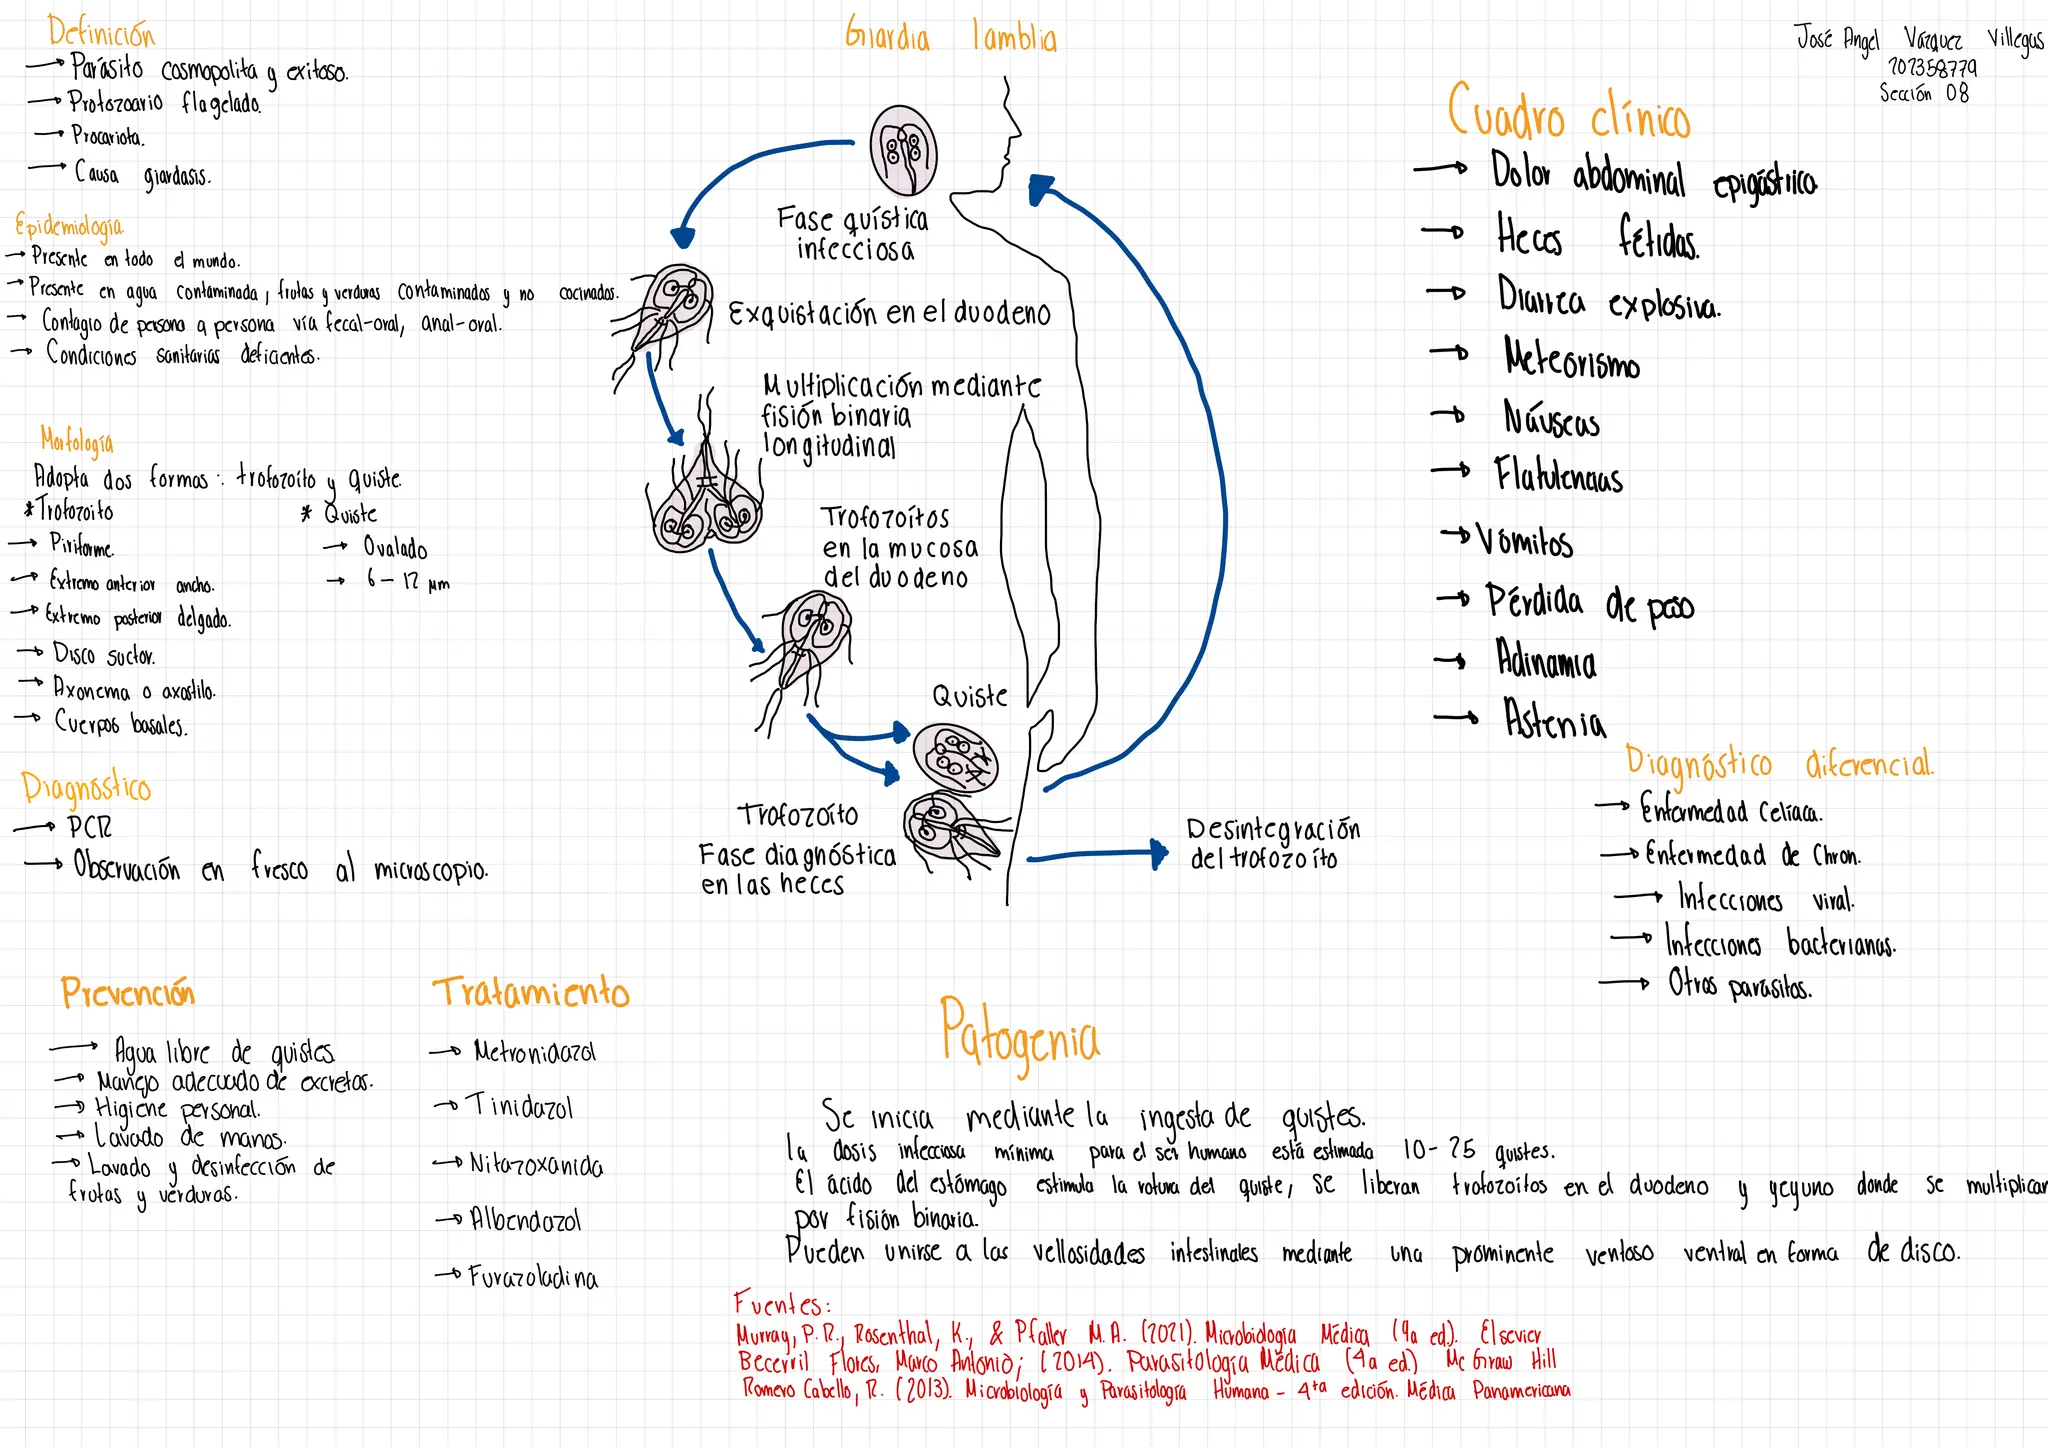 Giardia lamblia
José Angel Vázquez Villegas
202358779
Sección 08
Definición
→ Parásito cosmopolita y exitoso.
→ Protozoario flagelado.
→ Procariota.
→ Causa giardasis.
Epidemiología
→ Presente en todo el mundo.
→ Presente en agua contaminada, frutas y verduras contaminados y no cocinados.
→ Contagio de persona a persona vía fecal-oral, anal-oral.
→ Condiciones sanitarias deficientes.
Morfología
Adopta dos formas: trofozoíto y quiste.
* Trofozoito
→ Piriforme.
→ Extremo anterior ancho.
→ Extremo posterior delgado.
→ Disco suctor.
→ Axonema o axostilo.
→ Cuerpos basales.
* Quiste
→ Ovalado
→ 6-12 μm
Diagnóstico
→ PCR
→ Observación en fresco al microscopio.
Fase quística
infecciosa
Exquistación en el duodeno
Multiplicación mediante
fisión binaria
longitudinal
Trofozoítos
en la mucosa
del duodeno
Quiste
Trofozoíto
Fase diagnóstica
en las heces
Desintegración
del trofozoíto
Cuadro clínico
→ Dolor abdominal epigástrico
→ Heces fétidas.
→ Diarrea explosiva.
→ Meteorismo
→ Náuseas
→ Flatulencias
→ Vómitos
→ Pérdida de peso
→ Adinamia
→ Astenia
Diagnóstico diferencial.
→ Enfermedad Celíaca.
→ Enfermedad de Chron.
→ Infecciones viral.
→ Infecciones bacterianas.
→ Otros parásitos.
Prevención
→ Agua libre de quistes
→ Manejo adecuado de excretas.
→ Higiene personal.
→ Lavado de manos.
→ Lavado y desinfección de
frutas y verduras.
Tratamiento
→ Metronidazol
→ Tinidazol
→ Nitazoxanida
→ Albendazol
→ Furazoladina
Patogenia
Se inicia mediante la ingesta de quistes.
la dosis infecciosa mínima para el ser humano está estimada 10-25 quistes.
El ácido del estómago estimula la rotura del quiste, se liberan trofozoítos en el duodeno y yeyuno donde se multiplican
por fisión binaria.
Pueden unirse a las vellosidades intestinales mediante una prominente ventosa ventral en forma de disco.
Fuentes:
Murray, P. R., Rosenthal, K., & Pfaller M. A. (2021). Microbiología Médica (9a ed.). Elsevier
Becerril Flores, Marco Antonio; (2014). Parasitología Médica (4a ed.) Mc Graw Hill
Romero Cabello, R. (2013). Microbiología y Parasitología Humana - 4ta edición. Médica Panamericana